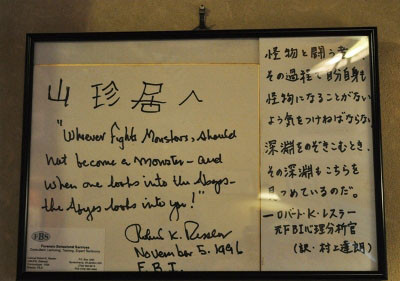 山珍居へ
"Whoever Fights Monsters, should
not become a monster - and
when one looks into the Abyss -
the Abyss looks into you!"
Robert K. Ressler
November 5, 1996
F.B.I.
FBS
Forensic Behavioral Services
怪物と闘う者、
その過程で自分自身も
怪物になることがない
よう気をつけねばならない
深淵をのぞきこむとき、
その深淵もこちらを
見つめているのだ。
―ロバート・K・レスラー
元FBI心理分析官
(訳・村上達朗)